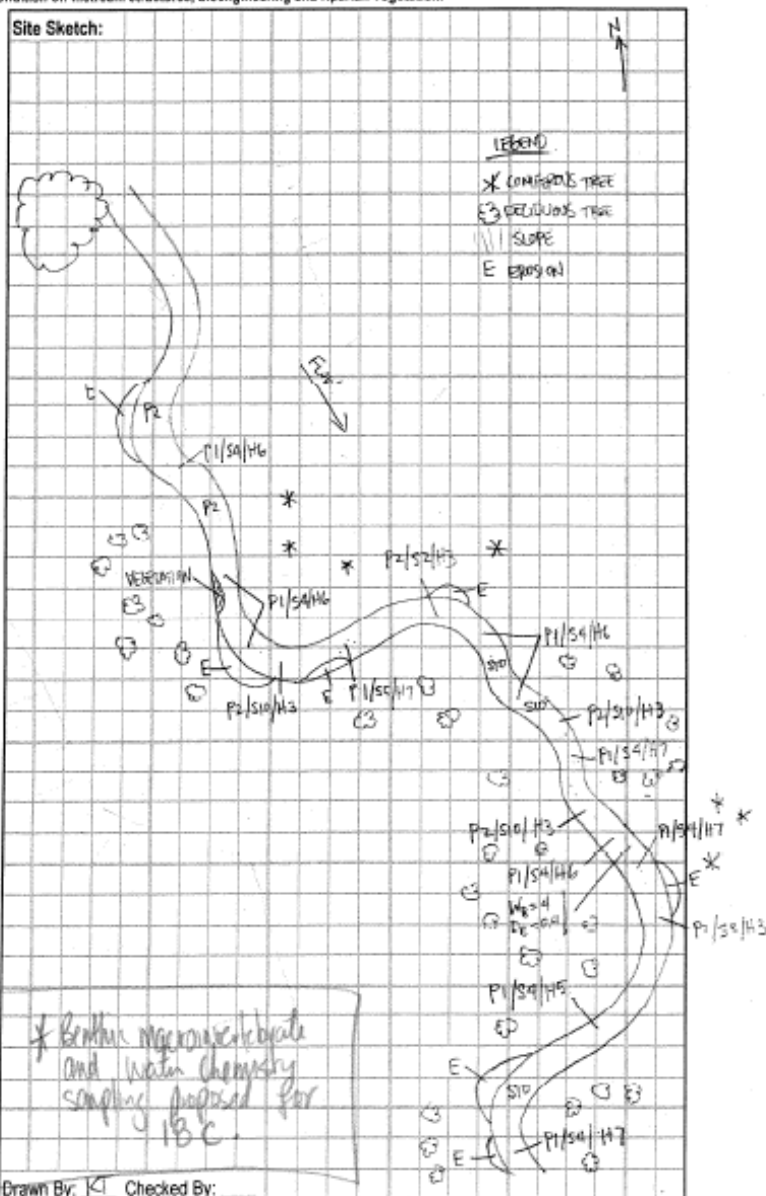 Site Sketch:
N
LEGEND
CONIFEROUS TREE
DECIDUOUS TREE
SLOPE
E EROSION
E
P2
P1/S4/H6
P2
VEGETATION
P1/S4/H6
P2/S2/H3
E
P1/S4/H6
S10
S10
E
P2/S10/H3
E
P1/S5/H7
P2/S10/H3
P1/S4/H7
P2/S10/H3
P1/S4/H7
P1/S4/H6
E
P1/S4/H5
E
S10
E
P1/S4/H7
* Benthic macroinvertebrate
and water chemistry
sampling proposed for
18C.
Drawn By: Checked By: